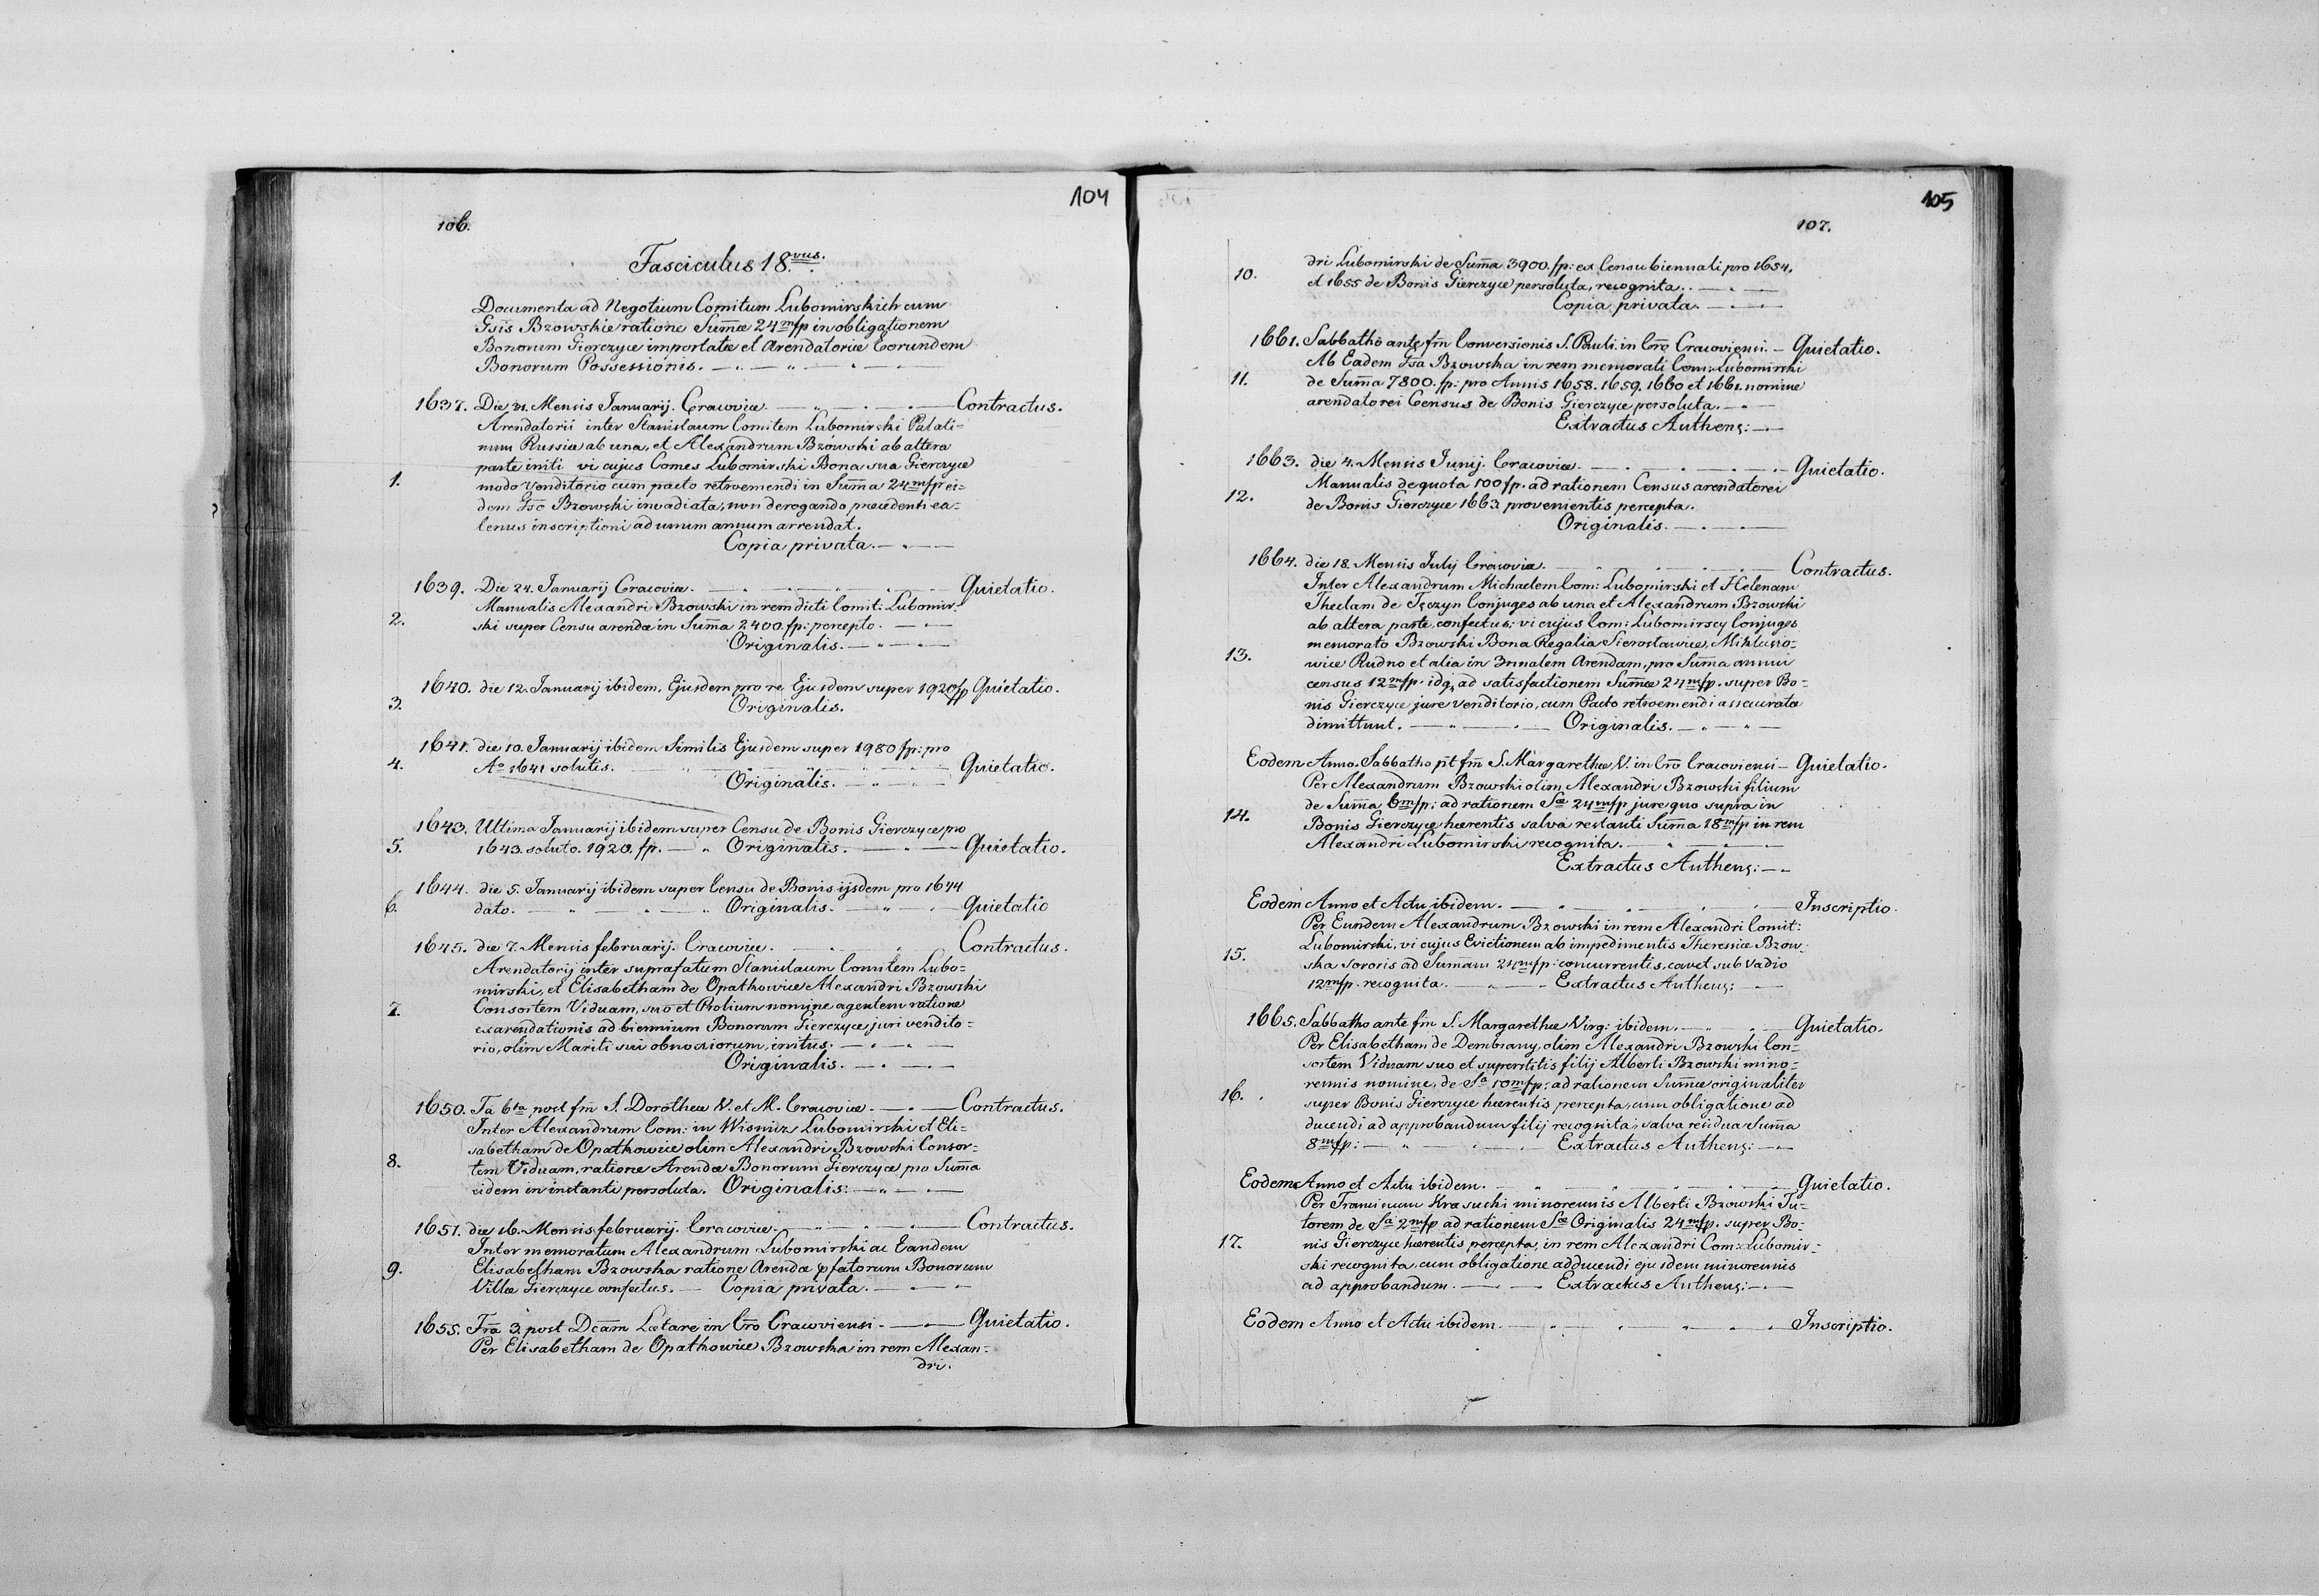 104
106.
Fasciculus 18vus.
Documenta ad Negotium Comitum Lubomirskich cum
Gsis Bzowskie ratione Sum̄æ 24m/fp in obligationem
Bonorum Gierczyce importatæ et Arendatoriæ Eorundem
Bonorum Possessionis.
1637. Die 21. Mensis Januarij. Cracoviæ. Contractus.
Arendatorii inter Stanislaum Comitem Lubomirski Palati=
num Russiæ ab una, et Alexandrum Bzowski ab altera
parte initi vi cujus Comes Lubomirski Bona sua Gierczyce
1. modo venditorio cum pacto retroemendi in Sum̄a 24m/fp ei=
dem Gso Bzowski invadiata, non derogando præcedenti ea=
tenus inscriptioni ad unum annum arrendat.
Copia privata.
1639. Die 24. Januarij Cracoviæ. Quietatio.
Manualis Alexandri Bzowski in rem dicti Comit: Lubomir=
2. ski super Censu arendæ in Sum̄a 2400. fp: percepto.
Originalis.
1640. die 12. Januarij ibidem. Ejusdem pro re Ejusdem super 1920 fp Quietatio.
3. Originalis.
1641. die 10. Januarij ibidem Similis Ejusdem super 1980 fp: pro
4. Ao 1641 solutis. Quietatio.
Originalis.
1643. Ultima Januarij ibidem super Censu de Bonis Gierczyce pro
5. 1643. soluto. 1920. fp. Originalis. Quietatio.
1644. die 5. Januarij ibidem super Censu de Bonis ijsdem pro 1644
6. dato. Originalis. Quietatio
1645. die 7. Mensis februarij. Cracoviæ. Contractus.
Arendatorij inter suprafatum Stanislaum Comitem Lubo=
mirski, et Elisabetham de Opatkowice Alexandri Bzowski
7. Consortem Viduam, suo et Prolium nomine agentem ratione
exarendationis ad biennium Bonorum Gierczyce juri vendito=
rio, olim Mariti sui obnoxiorum, initus.
Originalis.
1650. Fa 6ta post fm̄ S. Dorotheæ V. et M. Cracoviæ. Contractus.
Inter Alexandrum Com: in Wisnicz Lubomirski et Eli=
sabetham de Opatkowice olim Alexandri Bzowski Consor=
8. tem Viduam, ratione Arendæ Bonorum Gierczyce pro Sum̄a
eidem in instanti persoluta. Originalis.
1651. die 16. Mensis februarij. Cracoviæ. Contractus.
Inter memoratum Alexandrum Lubomirski ac Eandem
9. Elisabetham Bzowska ratione Arendæ pfatorum Bonorum
Villæ Gierczyce confectus. Copia privata.
1655. Fra 3. post Dcām Lætare in Crō Cracoviensi. Quietatio.
Per Elisabetham de Opatkowice Bzowska in rem Alexan=
dri.
105
107.
dri Lubomirski de Sum̄a 3900. fp: ex Censu biennali pro 1654.
10. et 1655 de Bonis Gierczyce persoluta, recognita.
Copia privata.
1661. Sabbatho ante fm̄ Conversionis S. Pauli in Crō Cracoviensi. Quietatio.
Ab Eadem Gsa Bzowska in rem memorati Com: Lubomirski
11. de Sum̄a 7800. fp: pro Annis 1658. 1659. 1660 et 1661. nomine
arendatorei Census de Bonis Gierczyce persoluta.
Extractus Authenç:
1663. die 4. Mensis Junij. Cracoviæ. Quietatio.
Manualis de quota 100 fp. ad rationem Census arendatorei
12. de Bonis Gierczyce 1663 provenientis percepta.
Originalis.
1664. die 18. Mensis Julij Cracoviæ. Contractus.
Inter Alexandrum Michaelem Com: Lubomirski et Helenam
Theclam de Tęczyn Conjuges ab una et Alexandrum Bzowski
ab altera parte, confectus; vi cujus Com: Lubomirscy Conjuges
memorato Bzowski Bona Regalia Sierosławice, Mikluszo=
13. wice Rudno et alia in 3nnalem Arendam, pro Sum̄a annui
census 12m/fp. idq, ad satisfactionem Sum̄æ 24m/fp. super Bo=
nis Gierczyce jure venditorio, cum Pacto retroemendi assecurata
dimittunt. Originalis.
Eodem Anno. Sabbatho pt fm̄ S. Margarethæ, V. in Crō Cracoviensi Quietatio.
Per Alexandrum Bzowski olim Alexandri Bzowski filium
de Sum̄a 6m/fp: ad rationem Sæ 24m/fp jure quo supra in
14. Bonis Gierczyce hærentis salva restanti Sum̄a 18m/fp in rem
Alexandri Lubomirski recognita.
Extractus Authenç:
Eodem Anno et Actu ibidem. Inscriptio.
Per Eundem Alexandrum Bzowski in rem Alexandri Comit:
Lubomirski, vi cujus Evictionem ab impedimentis Theressiæ Bzow=
15. ska sororis ad Sum̄am 24m/fp: concurrentis, cavet sub vadio
12m/fp. recognita. Extractus Authenç:
1665. Sabbatho ante fm̄ S. Margarethæ Virg: ibidem. Quietatio.
Per Elisabetham de Dembiany, olim Alexandri Bzowski Con=
sortem Viduam suo et superstitis filij Alberti Bzowski mino=
rennis nomine, de Sa 10m/fp: ad rationem Sum̄æ originaliter
16. super Bonis Gierczyce hærentis percepta, cum obligatione ad
ducendi ad approbandum filij recognita, salva residua Sum̄a
8m/fp: Extractus Authenç:
Eodem Anno et Actu ibidem. Quietatio.
Per Franciscum Krasucki minorennis Alberti Bzowski Tu=
torem de Sa 2m/fp ad rationem Sæ Originalis 24m/fp. super Bo=
17. nis Gierczyce hærentis percepta, in rem Alexandri Com: Lubomir=
ski recognita, cum obligatione adducendi ejusdem minorennis
ad approbandum. Extractus Authenç:
Eodem Anno et Actu ibidem. Inscriptio.